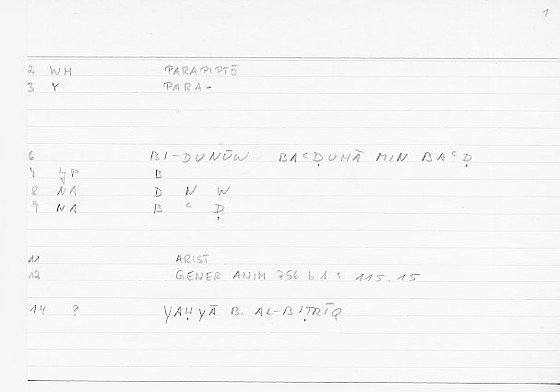 1
2 WH PARAPIPTŌ
3 Y PARA-
6 BI-DUNŪW BAᶜḌUHĀ MIN BAᶜḌ
7 JP B
8 NA D N W
9 NA B ᶜ Ḍ
11 ARIST
12 GENER ANIM 756 b 1 : 115.15
14 ? YAḤYĀ B. AL-BIṬRĪQ